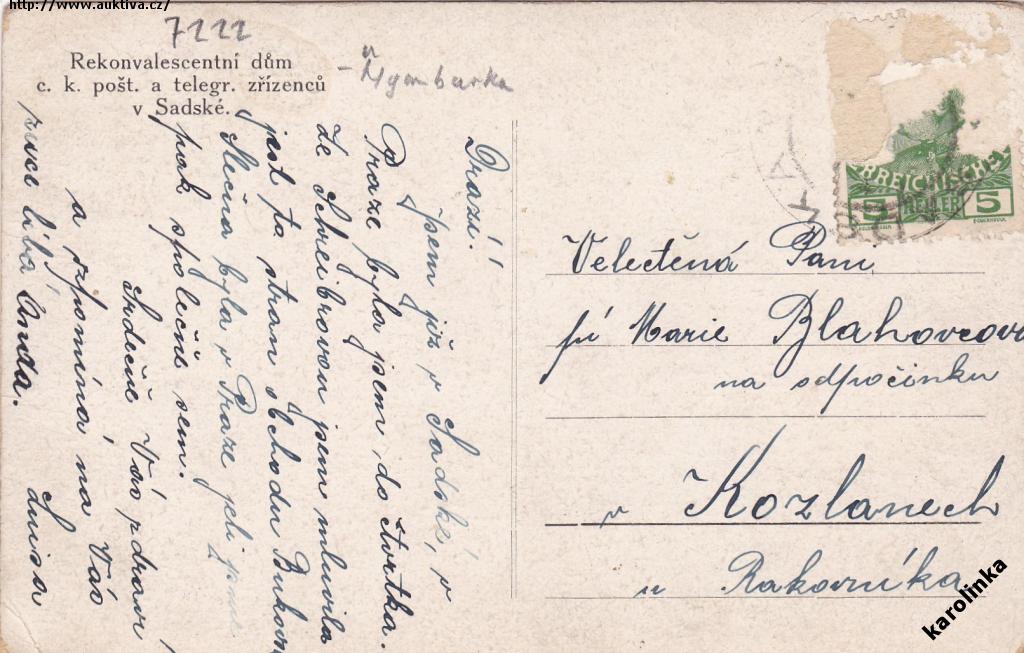 http://www.auktiva.cz/
7222
Rekonvalescentní dům
c. k. pošt. a telegr. zřízenců
v Sadské.
- u Nymburka
Drazí!
Jsem již v Sadské, v
Praze byla jsem do čtvrtka.
Ze Schreibrovou jsem mluvila
jest ta stran obchodu
Slečna byla v Praze jeli jsme
pak společně sem.
Srdečně Vás zdraví
a vzpomíná na Vás
ruce líbá
RREICHISCHE
5 HELLER 5
Velectěná Paní
pí Marie Blahovcová
na odpočinku
v Kozlanech
u Rakovníka
karolinka